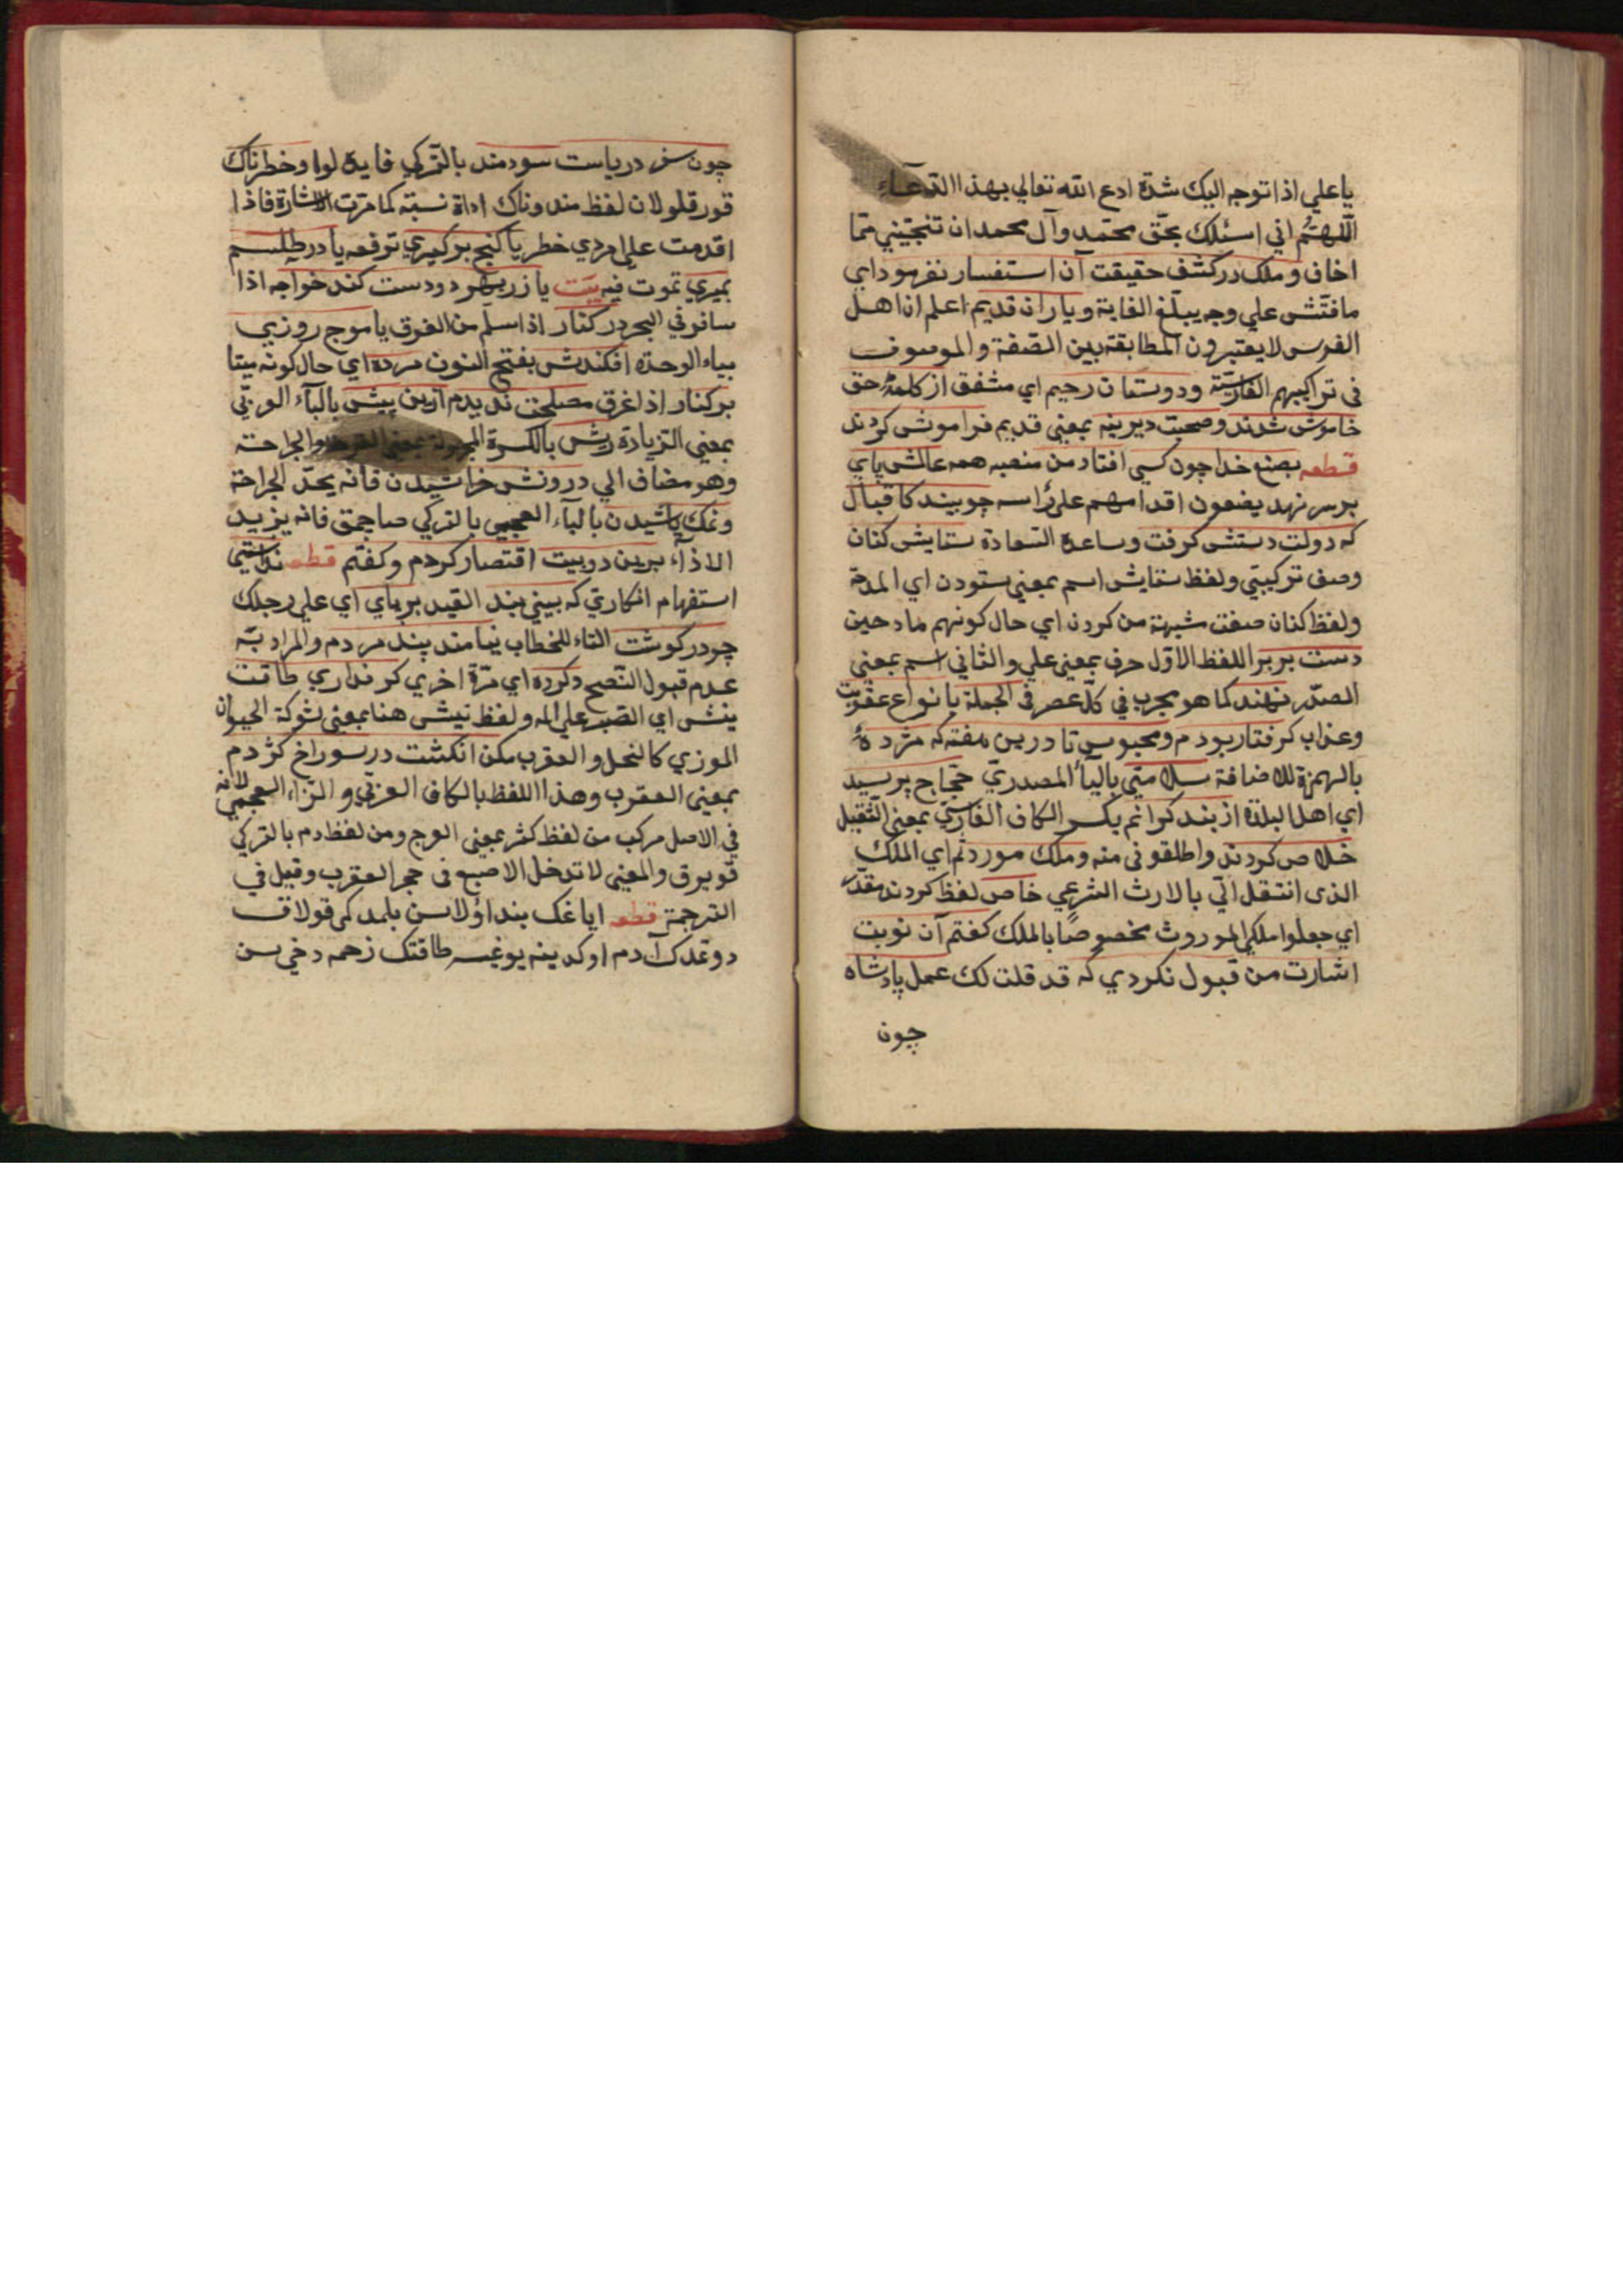 يا علي اذا توجه اليك شدة ادع الله تعالي بهذا الدعآء
اللهم اني اسئلك بحق محمد وآل محمد ان تنجيني مما
اخاف وملك در كشف حقيقت آن استفسار نفرمود اي
ما فتش علي وجه يبلغ الغاية وياران قديم اعلم ان اهل
الفرس لا يعتبرون المطابقة بين الصفة والموصوف
في تراكيبهم الفارسية ودوستان رحيم اي مشفق از كلمهٔ حق
خاموش شدند وصحبت ديرينه بمعني قديم فراموش كردند
قطعه بصنع خدا چون كسي افتاد من منصبه همه عالمش پاي
بر سر نهد يضعون اقدامهم علي رأسه چو بيند كاقبال
كه دولت دستش كرفت وساعده السعادة ستايش كنان
وصف تركيبي ولفظ ستايش اسم بمعني ستودن اي المدح
ولفظ كنان صفت مشبهة من كردن اي حال كونهم مادحين
دست بر بر اللفظ الاول حرف بمعني علي والثاني اسم بمعني
الصدر نهند كما هو مجرب في كل عصر في الجملة بانواع عقوبت
وعذاب كرفتار بودم ومحبوس تا درين هفته كه مژدهٔ
بالهمزة للاضافة سلامتي بالياء المصدري حجاج برسيد
اي اهل البلدة از بند كرانم بكسر الكاف الفارسي بمعني الثقيل
خلاص كردند واطلقوني منه وملك موروثم اي الملك
الذي انتقل الي بالارث الشرعي خاص لفظ كردند مقدر
اي جعلوا ملكي الموروث مخصوصًا بالملك كفتم آن نوبت
اشارت من قبول نكردي كه قد قلت لك عمل پادشاه
چون
چون سفر درياست سودمند بالتركي فايده لو اوخطرناك
قورقلو لان لفظ مند وناك اداة نسبته كما مرت الاشارة فاذا
اقدمت علي امر ذي خطر يا كنج بر كيري ترفعه يا در طلسم
بميري تموت فيه بيت يا زر بهر دو دست كند خواجه اذا
سافر في البحر در كنار اذا سلم من الغرق يا موج روزي
بياء الوحدة افكندش بفتح النون مرده اي حال كونه ميتا
بر كنار اذا غرق مصلحت نديدم ازين بيش بالبآء العربي
بمعني الزيادة ريش بالكسرة المجهولة بمعني القرحة والجراحة
وهو مضاف الي درونش خراشيدن فانه يحد الجراحة
ونمك پاشيدن بالبآء العجمي بالتركي صاچمق فانه يزيد
الاذآء برين دو بيت اقتصار كردم وكفتم قطعه ندانستي
استفهام انكاري كه بيني بند القيد بر پاي اي علي رجلك
چو در كوشت التاء للخطاب نيامد پند مردم والمراد به
عدم قبول النصح دكر ره اي مرة اخري كر نداري طاقت
نيش اي الصبر علي المه ولفظ نيش هنا بمعني شوكة الحيوان
الموذي كالنحل والعقرب مكن انكشت در سوراخ كژدم
بمعني العقرب وهذا اللفظ بالكاف العربي والزاء العجمي لانه
في الاصل مركب من لفظ كژ بمعني العوج ومن لفظ دم بالتركي
قويرق والمعني لا تدخل الاصبع في حجر العقرب وقيل في
الترجمة قطعه اياغك بند اولاسن بلمدكمي قولاق
دوتمدك آدم اوكدينه يوغسه طاقتك زحمه دخي سن